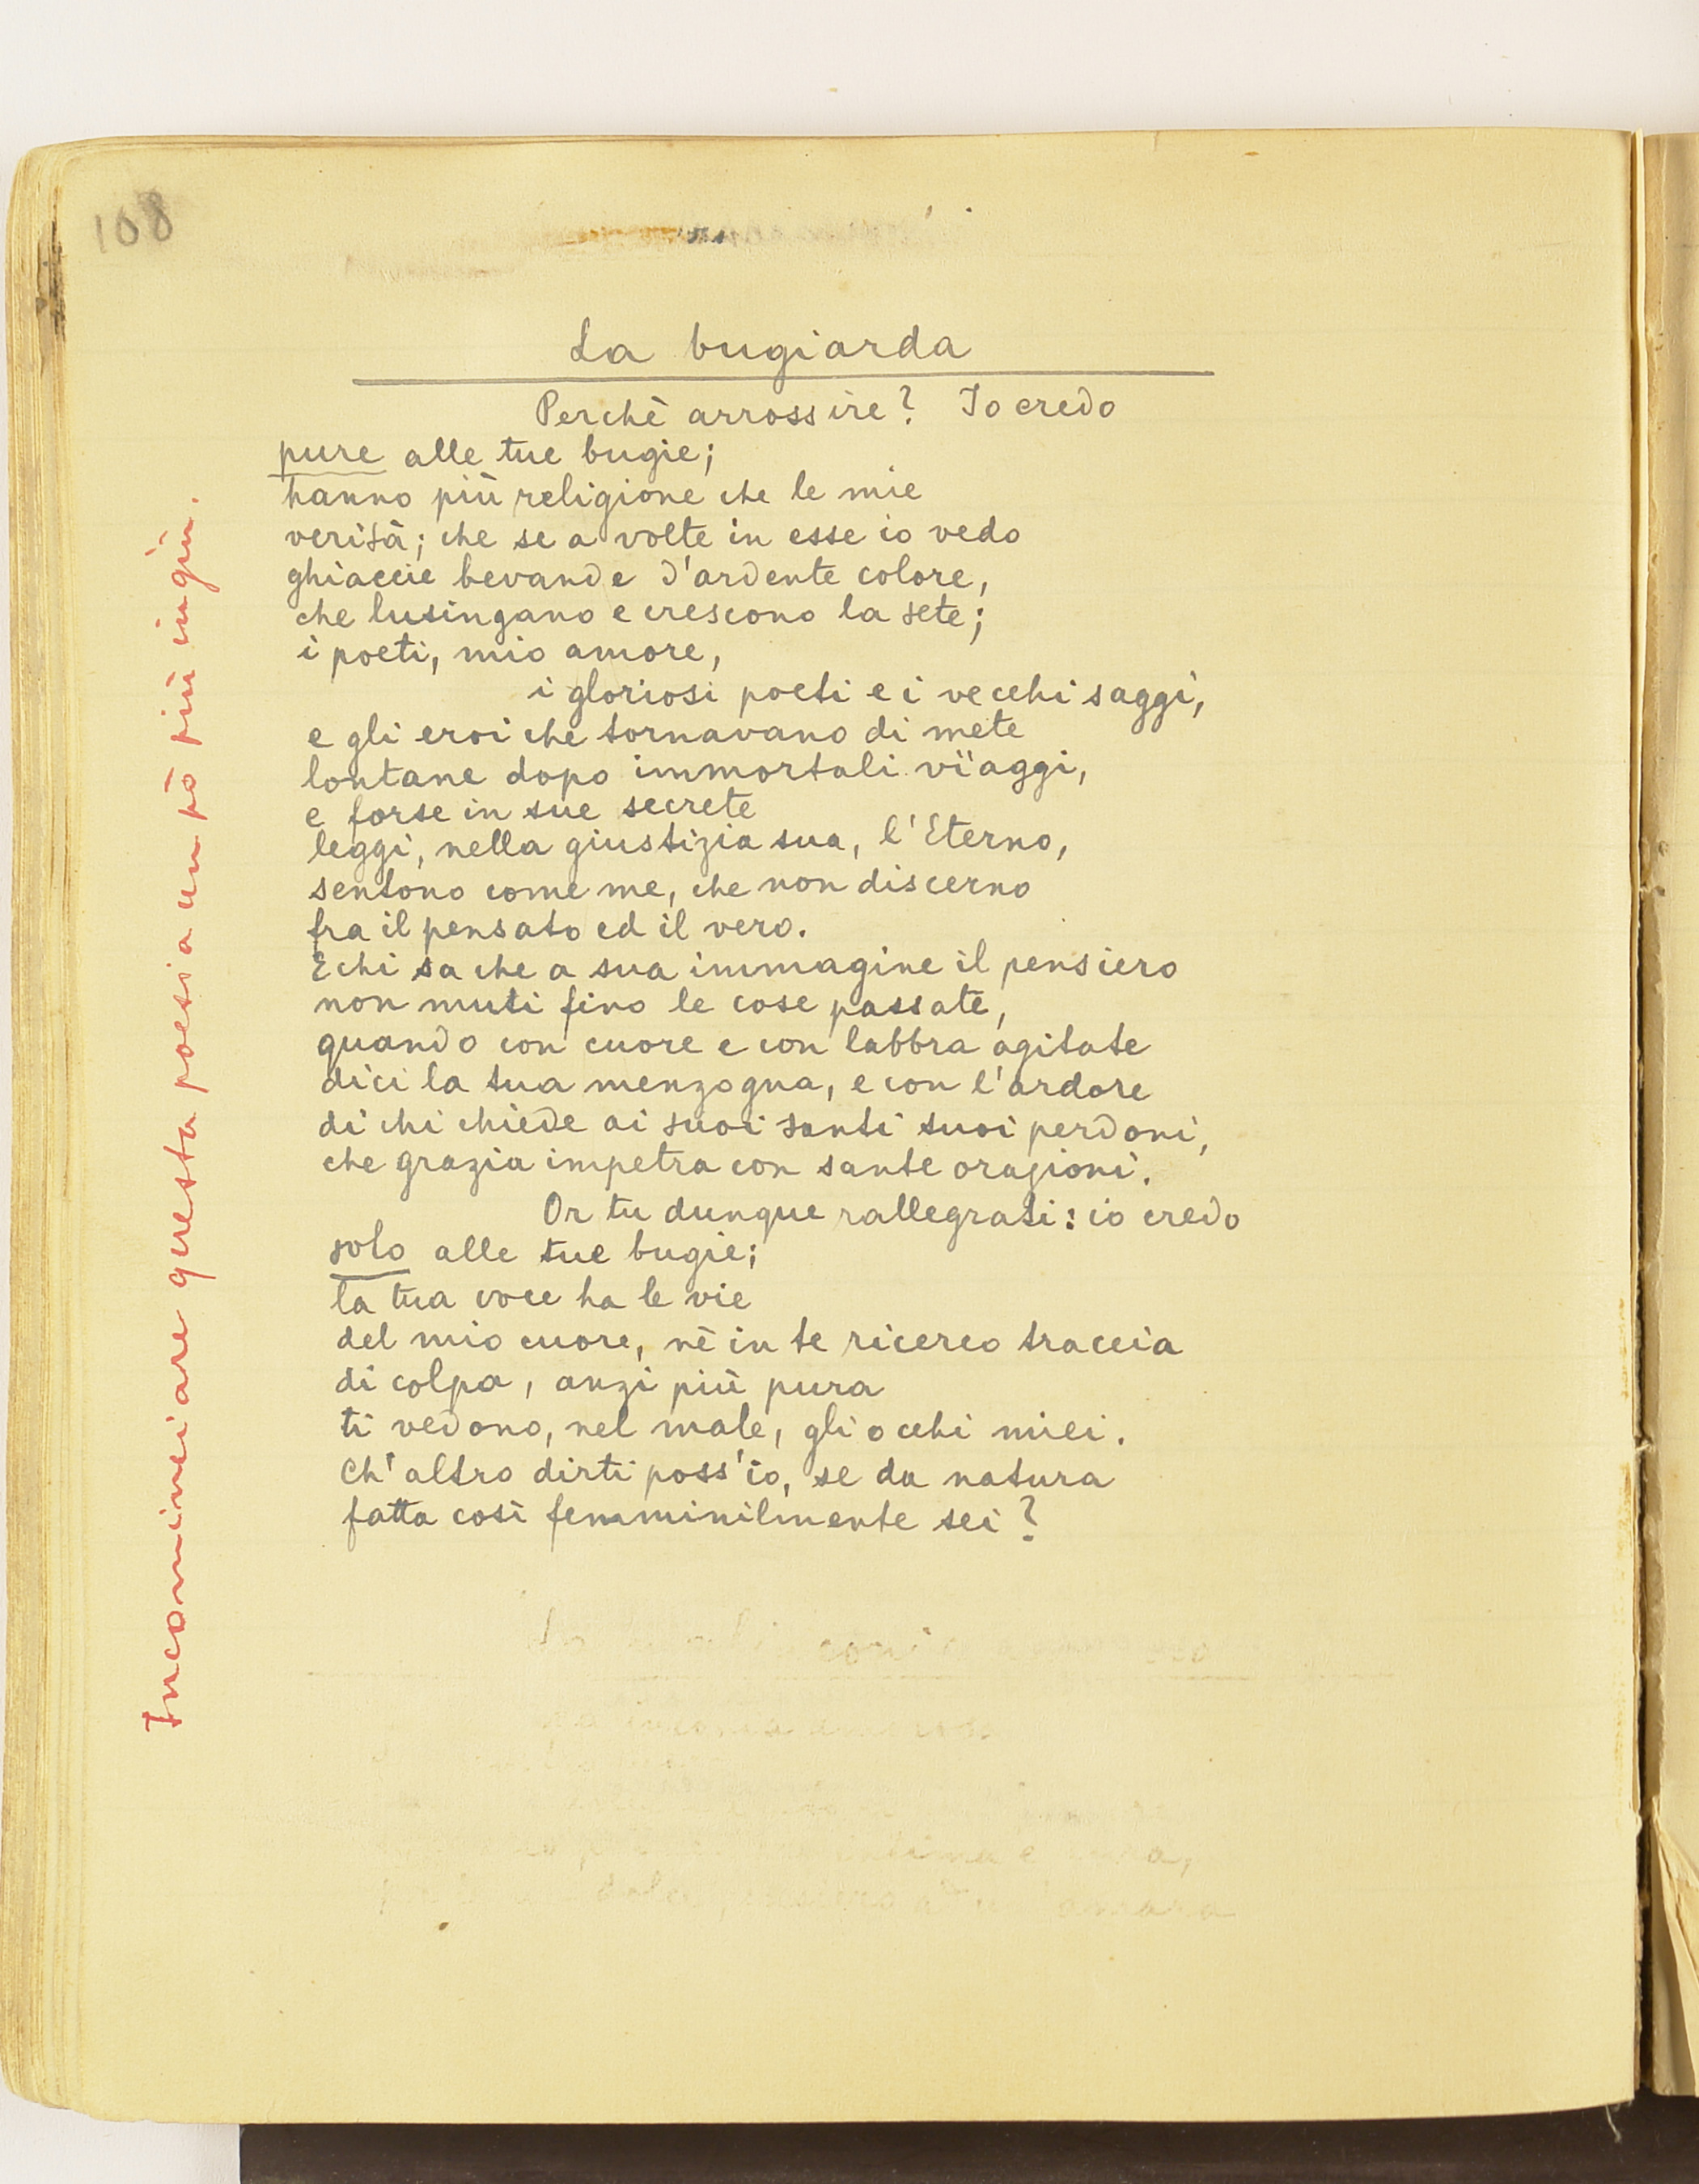 108
La bugiarda
Perchè arrossire? Io credo
pure alle tue bugie;
hanno più religione che le mie
verità; che se a volte in esse io vedo
ghiaccie bevande d'ardente colore,
che lusingano e crescono la sete;
i poeti, mio amore,
i gloriosi poeti e i vecchi saggi,
e gli eroi che tornavano di mete
lontane dopo immortali vïaggi,
e forse in sue secrete
leggi, nella giustizia sua, l'Eterno,
sentono come me, che non discerno
fra il pensato ed il vero.
E chi sa che a sua immagine il pensiero
non muti fino le cose passate,
quando con cuore e con labbra agitate
dici la tua menzogna, e con l'ardore
di chi chiede ai suoi santi suoi perdoni,
che grazia impetra con sante orazioni.
Or tu dunque rallegrati: io credo
solo alle tue bugie;
la tua voce ha le vie
del mio cuore, nè in te ricerco traccia
di colpa, anzi più pura
ti vedono, nel male, gli occhi miei.
Ch'altro dirti poss'io, se da natura
fatta così femminilmente sei?
Incominciare questa poesia un pò più in giù.